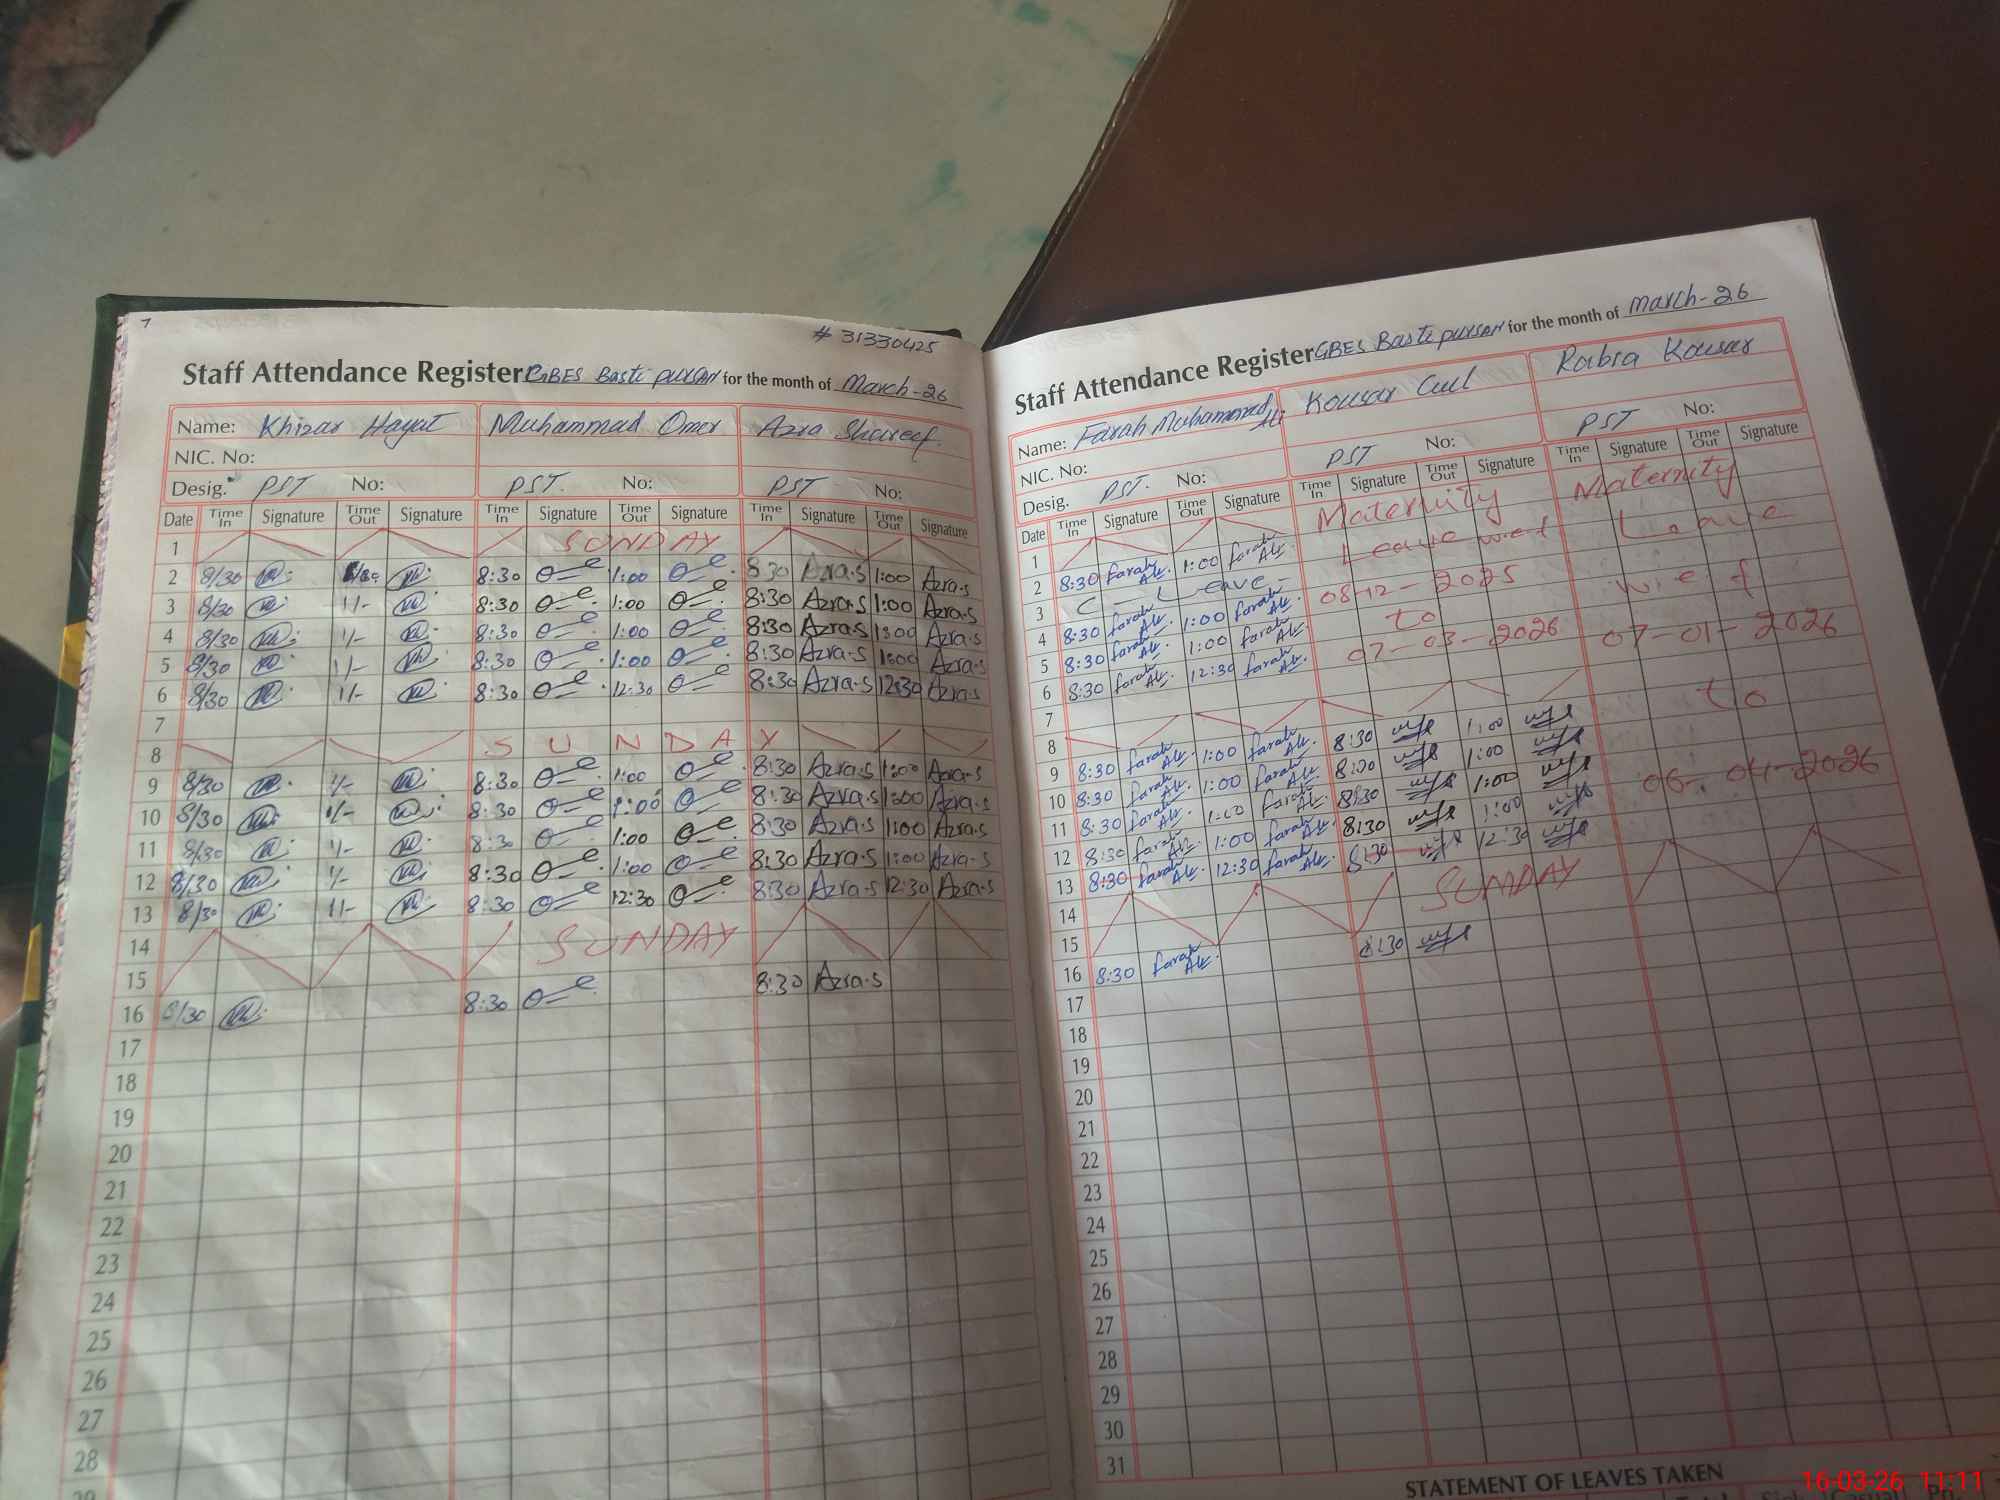 7
# 31330425
Staff Attendance Register GBES Basti pursan for the month of March-26
Name: Khizar Hayat Muhammad Omer Azra Shareef.
NIC. No:
Desig. PST No: PST. No: PST No:
Date Time In Signature Time Out Signature Time In Signature Time Out Signature Time In Signature Time Out Signature
1 SUNDAY
2 8/30 8:30 1:00 8:30 Azra.S 1:00 Azra.S
3 8/30 11- 8:30 1:00 8:30 Azra.S 1:00 Azra.S
4 8/30 11- 8:30 1:00 8:30 Azra.S 1:00 Azra.S
5 8/30 11- 8:30 1:00 8:30 Azra.S 1:00 Azra.S
6 8/30 11- 8:30 12:30 8:30 Azra.S 12:30 Azra.S
7
8 SUNDAY
9 8/30 11- 8:30 1:00 8:30 Azra.S 1:00 Azra.S
10 8/30 11- 8:30 1:00 8:30 Azra.S 1:00 Azra.S
11 8/30 11- 8:30 1:00 8:30 Azra.S 1:00 Azra.S
12 8/30 11- 8:30 1:00 8:30 Azra.S 1:00 Azra.S
13 8/30 11- 8:30 12:30 8:30 Azra.S 12:30 Azra.S
14 SUNDAY
15
16 8/30 8:30 8:30 Azra.S
17
18
19
20
21
22
23
24
25
26
27
28
Staff Attendance Register GBES Basti pursan for the month of March-26
Name: Farah Muhammad Ali Kousar Gul Rabia Kousar
NIC. No:
Desig. PST. No: PST No: PST No:
Date Time In Signature Time Out Signature Time In Signature Time Out Signature Time In Signature Time Out Signature
1 Maternity Maternity
2 8:30 Farah Ali. 1:00 Farah Ali. Leave w.e.f Leave
3 C - Leave - 08-12-2025 w.e.f
4 8:30 Farah Ali. 1:00 Farah Ali. to 07-01-2026
5 8:30 Farah Ali. 1:00 Farah Ali. 07-03-2026
6 8:30 Farah Ali. 12:30 Farah Ali. to
7
8
9 8:30 Farah Ali. 1:00 Farah Ali. 8:30 1:00 06-04-2026
10 8:30 Farah Ali. 1:00 Farah Ali. 8:30 1:00
11 8:30 Farah Ali. 1:00 Farah Ali. 8:30 1:00
12 8:30 Farah Ali. 1:00 Farah Ali. 8:30 1:00
13 8:30 Farah Ali. 12:30 Farah Ali. 8:30 12:30
14 SUNDAY
15
16 8:30 Farah Ali. 8:30
17
18
19
20
21
22
23
24
25
26
27
28
29
30
31
STATEMENT OF LEAVES TAKEN
16-03-26 11:11